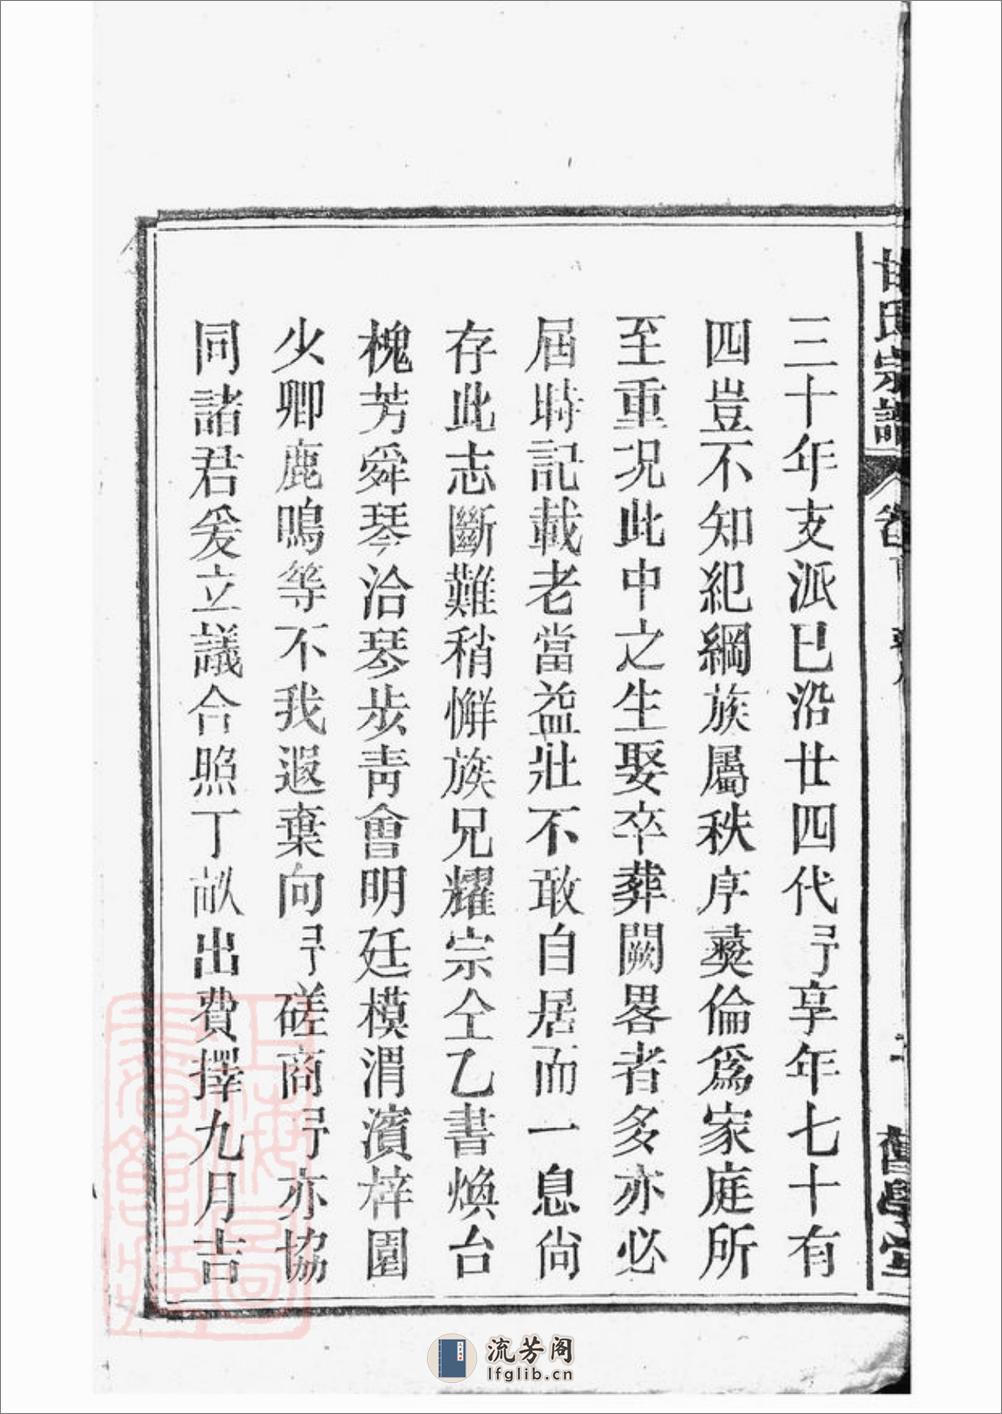 甘氏宗譜
三十年支派已沿廿四代予享年七十有
四豈不知犯綱族屬秩序彝倫爲家庭所
至重況此中之生娶卒葬闕畧者多亦必
屆時記載老當益壯不敢自居而一息尙
存此志斷難稍懈族兄耀宗仝乙書煥台
槐芳舜琴洽琴步靑會明廷模渭濱梓園
少卿鹿鳴等不我遐棄向予磋商予亦協
同諸君爰立議合照丁畝出費擇九月吉
流芳阁
lfglib.cn